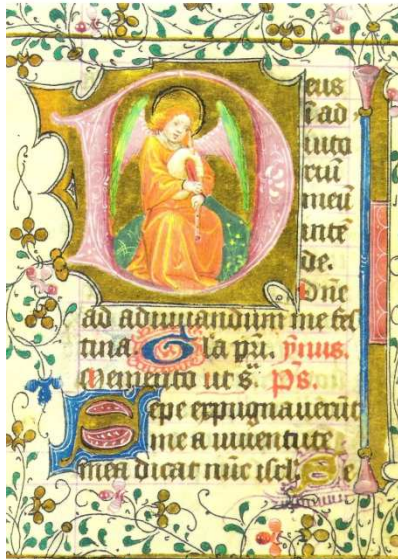 Deus
i ad
iuto
riū
meū
intē
de.
Dñe
ad adiuuandum me fes
tina. Gla pr̄i. ymus.
Memento ut s̄. Ps.
Sepe expugnauerūt
me a iuuentute
mea dicat nūc isrl Se